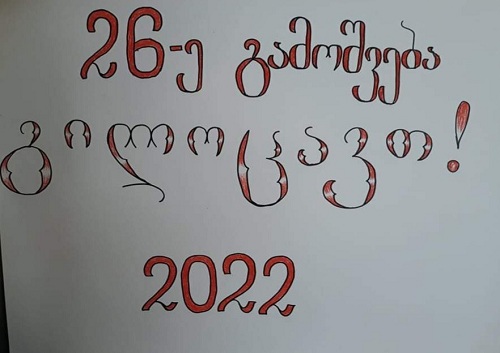 26-ე გამოშვება
გილოცავთ!
2022